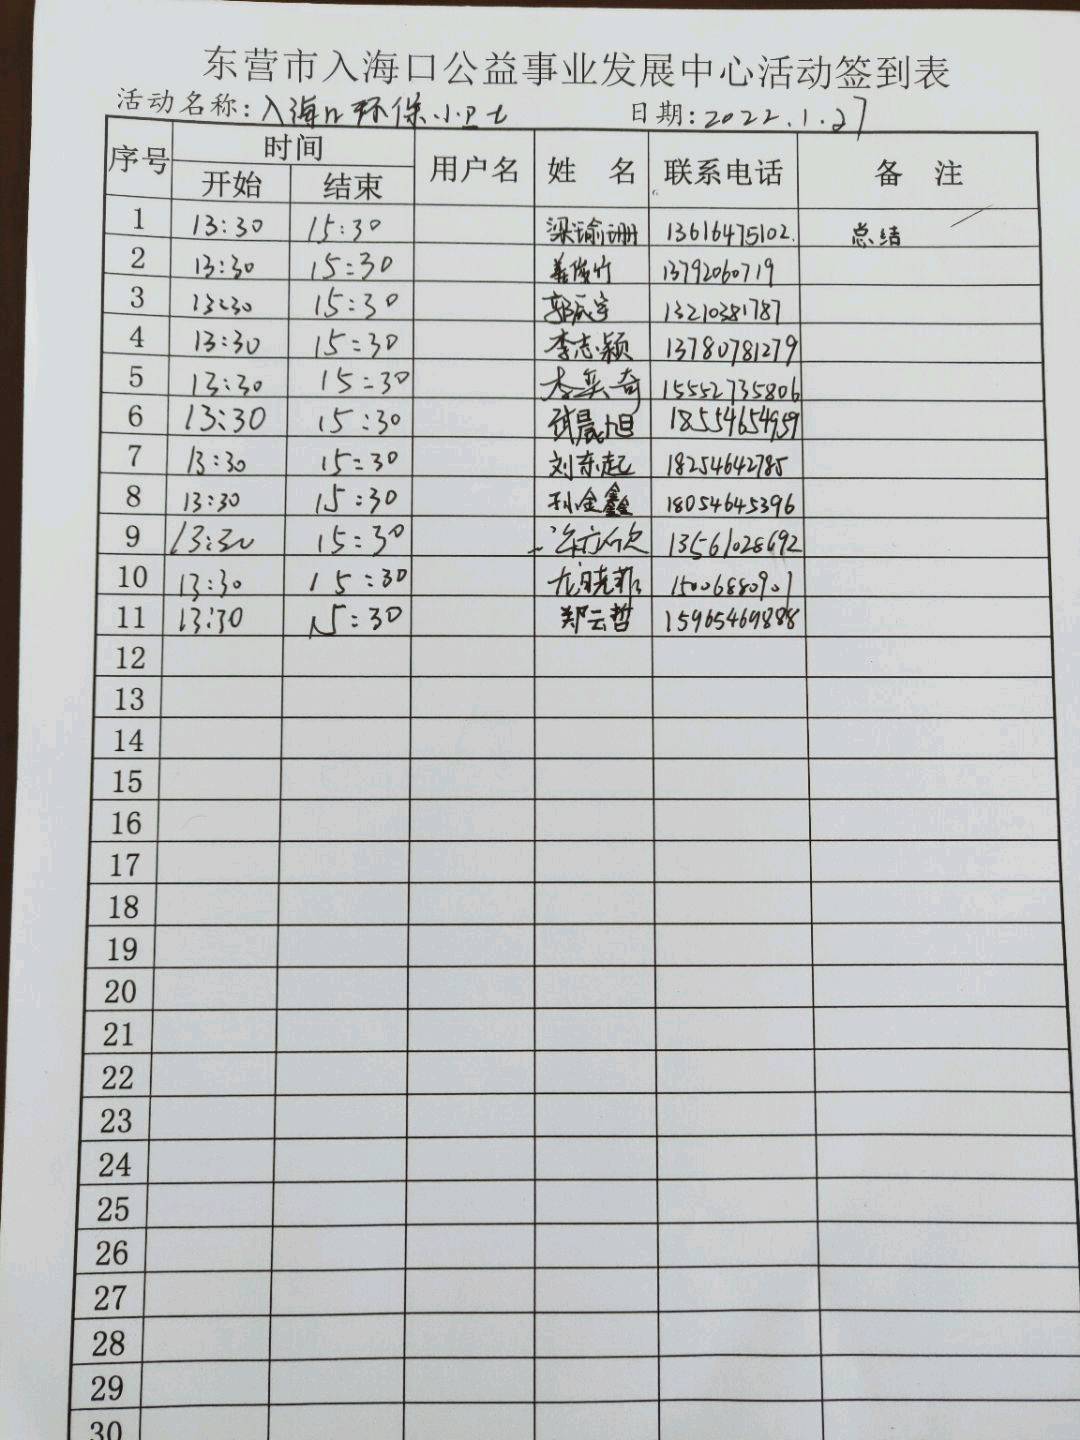 东营市入海口公益事业发展中心活动签到表
活动名称:入海口环保小卫士 日期:2022.1.27
序号 时间 用户名 姓 名 联系电话 备 注
开始 结束
1 13:30 15:30 梁瑜珊 13616475102. 总结
2 13:30 15:30 姜俊竹 13792060719
3 13:30 15:30 郭辰宇 13210381787
4 13:30 15:30 李志颖 13780781279
5 13:30 15:30 李奕奇 15552735806
6 13:30 15:30 晨旭 18554654959
7 13:30 15:30 刘东起 18254642785
8 13:30 15:30 孙金鑫 18054645396
9 13:30 15:30 13561028692
10 13:30 15:30 尤晓菲 15006880901
11 13:30 15:30 郑云哲 15965469888
12
13
14
15
16
17
18
19
20
21
22
23
24
25
26
27
28
29
30